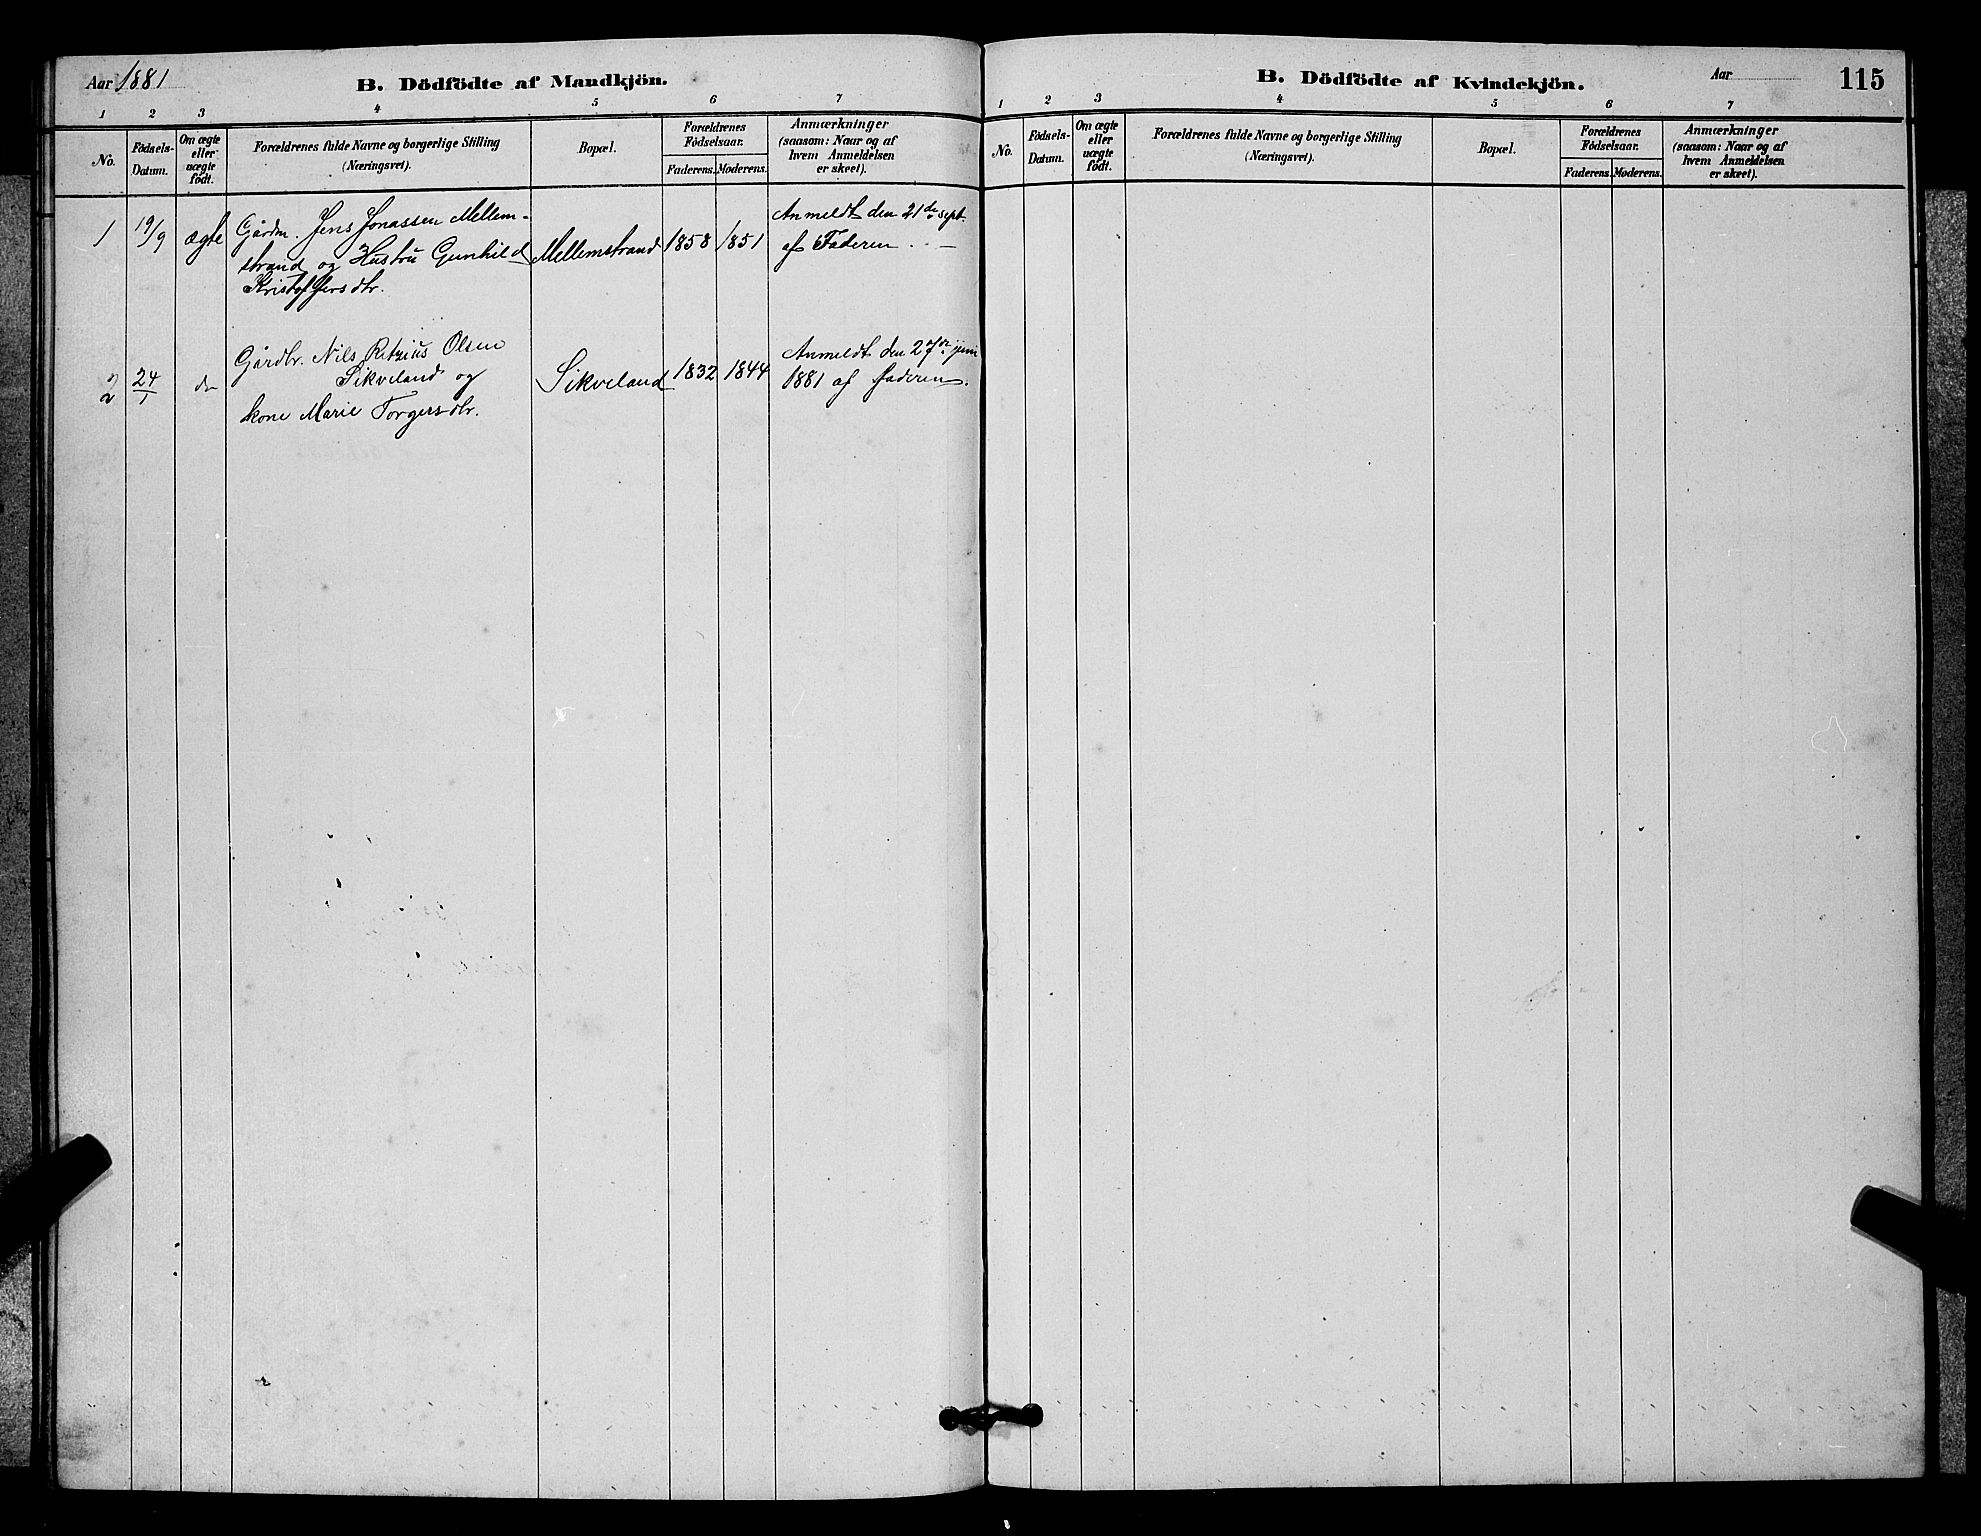 Aar 1881
B. Dödfödte af Mandkjön.
1 2 3 4 5 6 7
No.
Födsels-
Datum.
Om ægte
eller
uægte
födt.
Forældrenes fulde Navne og borgerlige Stilling
(Næringsvei).
Bopæl.
Forældrenes
Födselsaar.
Faderens. Moderens.
Anmærkninger
(saasom: Naar og af
hvem Anmeldelsen
er skeet).
1 19/9 ægte Gårdm. Jens Jonassen Mellem-
strand og Hustru Gunhild
Kristoffersdtr.
Mellemstrand 1858 1851
Anmeldt den 21de sept.
af Faderen.
2 24/1 do
Gårdbr. Nils Retzius Olsen
Sikveland og
kone Marie Torgersdtr.
Sikveland 1832 1844
Anmeldt den 27de juni
1881 af faderen.
B. Dödfödte af Kvindekjön.
Aar
115
1 2 3 4 5 6 7
No.
Födsels-
Datum.
Om ægte
eller
uægte
födt.
Forældrenes fulde Navne og borgerlige Stilling
(Næringsvei).
Bopæl.
Forældrenes
Födselsaar.
Faderens. Moderens.
Anmærkninger
(saasom: Naar og af
hvem Anmeldelsen
er skeet).